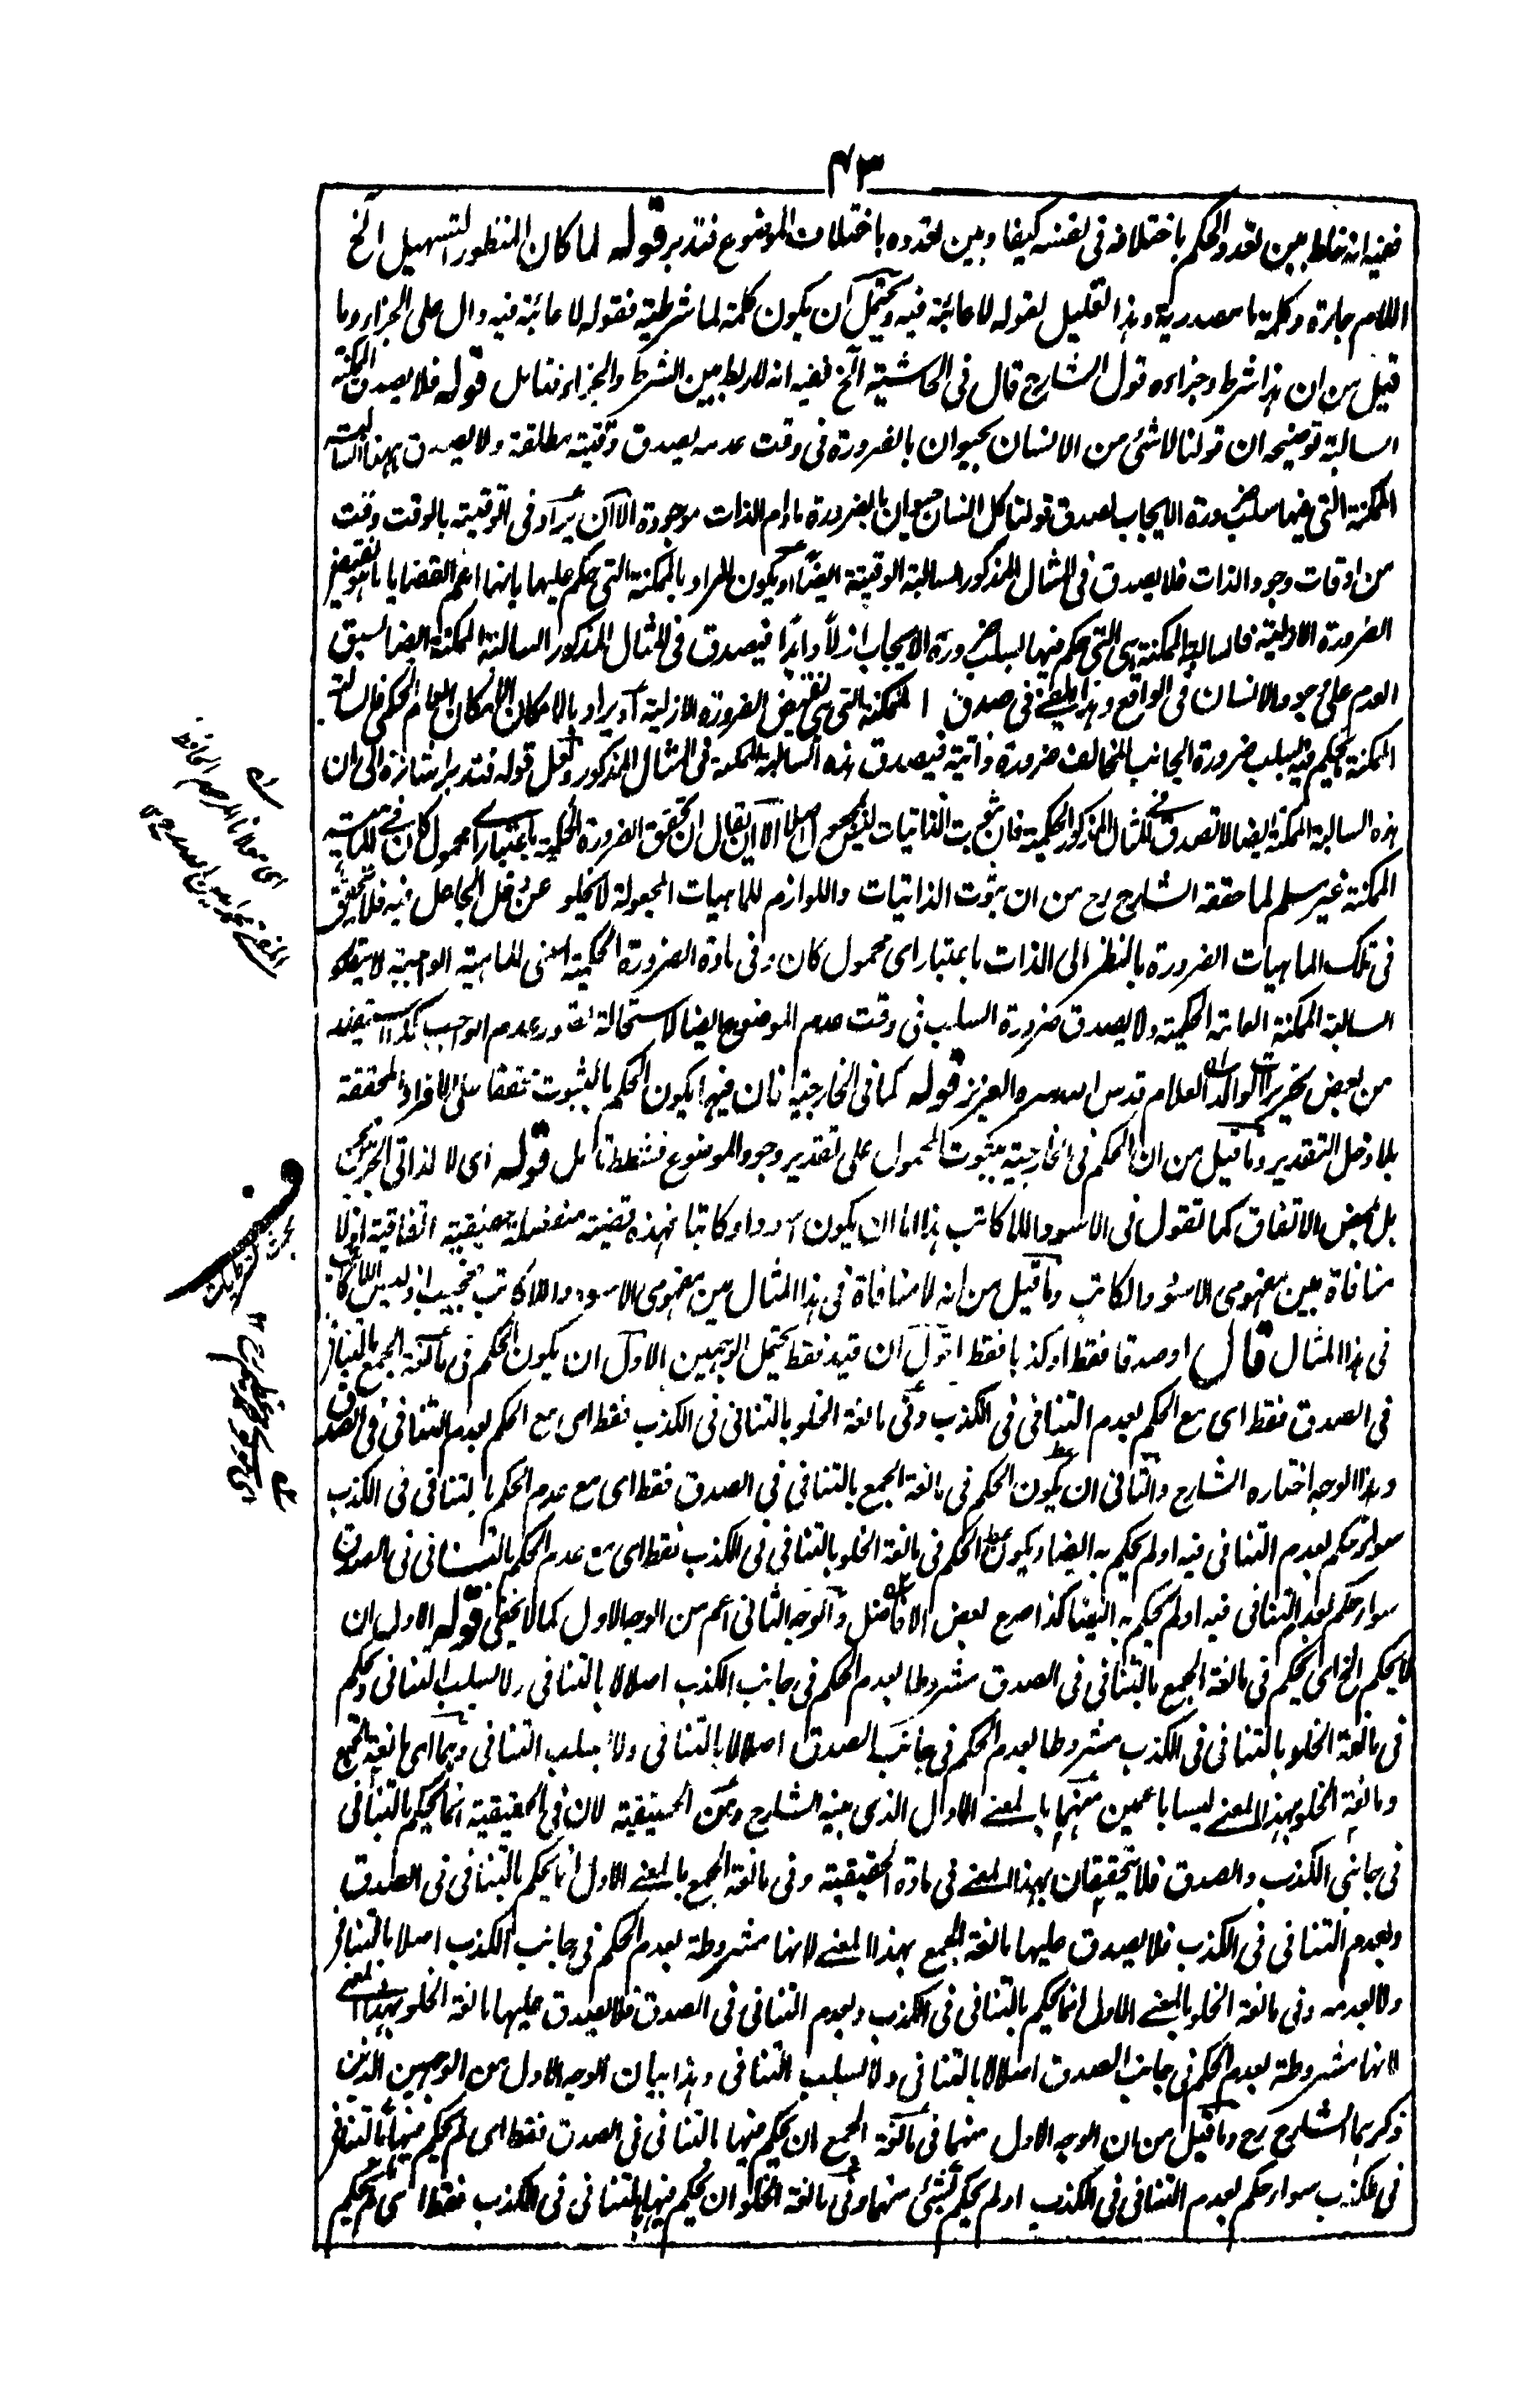 ٤٣
ففيه انه خلط بين تعدد الحكم باختلافه فى نفسه كيفا وبين تعدده باختلاف الموضوع فتدبر قوله لما كان المنظور لتسهيل الخ
اللام جارة وكلمة ما مصدرية وهذا تعليل لقوله لا عائبة فيه ويحتمل ان يكون كلمة لما شرطية فقوله لا عائبة فيه دال على الجزاء وما
قيل من ان هذا شرط وجزاءه قول الشارح قال فى الحاشية الخ ففيه انه لا ربط بين الشرط والجزاء فتأمل قوله فلا يصدق الممكنة
السالبة توضيحه ان قولنا لا شئ من الانسان بحيوان بالضرورة فى وقت عدمه يصدق وقتية مطلقة ولا يصدق ههنا السالبة
الممكنة التى فيها سلب ضرورة الايجاب لصدق قولنا كل انسان حيوان بالضرورة مادام الذات موجودة الا ان يراد فى الوقتية بالوقت وقت
من اوقات وجود الذات فلا يصدق فى المثال المذكور السالبة الوقتية ايضا او يكون المراد بالممكنة التى حكم عليها بانها اعم القضايا ما هو نقيض
الضرورة الازلية فالسالبة الممكنة هى التى حكم فيها بسلب ضرورة الايجاب ازلا وابدا فيصدق فى المثال المذكور السالبة الممكنة ايضا لسبق
العدم على وجود الانسان فى الواقع وهذا يكفى فى صدق الممكنة التى هى نقيض الضرورة الازلية او يراد بالامكان الامكان العام الحكمى فالسالبة
الممكنة يحكم فيه بسلب ضرورة الجانب المخالف ضرورة ذاتية فيصدق هذه السالبة الممكنة فى المثال المذكور ولعل قوله فتدبر اشارة الى ان
هذه السالبة الممكنة ايضا لا تصدق فى المثال المذكور الحكمية فان ثبوت الذاتيات ليس بمجعول اصلا الا ان يقال ان تحقق الضرورة الحكمية باعتبار اى محمول كان فى الماهية
الممكنة غير مسلم لما حققه الشارح رح من ان ثبوت الذاتيات واللوازم للماهيات المجعولة لا يخلو عن دخل الجاعل فيه فلا تتحقق
فى تلك الماهيات الضرورة بالنظر الى الذات باعتبار اى محمول كان وفى مادة الضرورة الحكمية اعنى الماهية الواجبية لا يصدق
السالبة الممكنة العامة الحكمية ولا يصدق ضرورة السلب فى وقت عدم الموضوع ايضا لاستحالة تصور عدم الواجب هكذا استفيد
من بعض تحريرات الوالد العلام قدس الله سره العزيز قوله كما فى الخارجية فان فيها يكون الحكم بالثبوت متفقا على الافراد المحققة
بلا دخل التقدير وما قيل من ان الحكم فى الخارجية بثبوت المحمول على تقدير وجود الموضوع فشطط تأمل قوله اى لا لذاتى الجزئين
بل بمحض الاتفاق كما تقول فى الاسود واللا كاتب هذا اما ان يكون اسود او كاتبا فهذه قضية منفصلة حقيقية اتفاقية اذ لا
منافاة بين مفهومى الاسود والكاتب وما قيل من انه لا منافاة فى هذا المثال بين مفهومى الاسود واللا كاتب فعجيب اذ ليس اللا كاتب
فى هذا المثال قال او صدقا فقط او كذبا فقط اقول ان قيد فقط يحتمل الوجهين الاول ان يكون الحكم فى مانعة الجمع بالتنافى
فى الصدق فقط اى مع الحكم بعدم التنافى فى الكذب وفى مانعة الخلو بالتنافى فى الكذب فقط اى مع الحكم بعدم التنافى فى الصدق
وهذا الوجه اختاره الشارح والثانى ان يكون الحكم فى مانعة الجمع بالتنافى فى الصدق فقط اى مع عدم الحكم بالتنافى فى الكذب
سواء حكم بعدم التنافى فيه او لم يحكم به ايضا ويكون الحكم فى مانعة الخلو بالتنافى فى الكذب فقط اى مع عدم الحكم بالتنافى فى الصدق
سواء حكم بعدم التنافى فيه او لم يحكم به ايضا كذا صرح بعض الافاضل والوجه الثانى اعم من الوجه الاول كما لا يخفى قوله الاول ان
لا يحكم الخ اى يحكم فى مانعة الجمع بالتنافى فى الصدق مشروطا بعدم الحكم فى جانب الكذب اصلا لا بالتنافى ولا بسلب التنافى ويحكم
فى مانعة الخلو بالتنافى فى الكذب مشروطا بعدم الحكم فى جانب الصدق اصلا لا بالتنافى ولا بسلب التنافى وهما اى مانعة الجمع
ومانعة الخلو بهذا المعنى ليسا باعمين منهما بالمعنى الاول الذى بينه الشارح وعن الحقيقية لان فى الحقيقية انما يحكم بالتنافى
فى جانبى الكذب والصدق فلا تتحققان بهذا المعنى فى مادة الحقيقية وفى مانعة الجمع بالمعنى الاول انما يحكم بالتنافى فى الصدق
وبعدم التنافى فى الكذب فلا يصدق عليها مانعة الجمع بهذا المعنى لانها مشروطة بعدم الحكم فى جانب الكذب اصلا لا بالتنافى
ولا بعدمه وفى مانعة الخلو بالمعنى الاول انما يحكم بالتنافى فى الكذب وبعدم التنافى فى الصدق فلا يصدق عليها مانعة الخلو بهذا المعنى
لانها مشروطة بعدم الحكم فى جانب الصدق اصلا لا بالتنافى ولا بسلب التنافى وهذا بيان للوجه الاول من الوجهين الذين
ذكرهما الشارح رح وما قيل من ان الوجه الاول منهما فى مانعة الجمع ان يحكم فيها بالتنافى فى الصدق فقط اى لم يحكم فيها بالتنافى
فى الكذب سواء حكم بعدم التنافى فى الكذب او لم يحكم بشئ منهما وفى مانعة الخلو ان يحكم فيها بالتنافى فى الكذب فقط اى لم يحكم